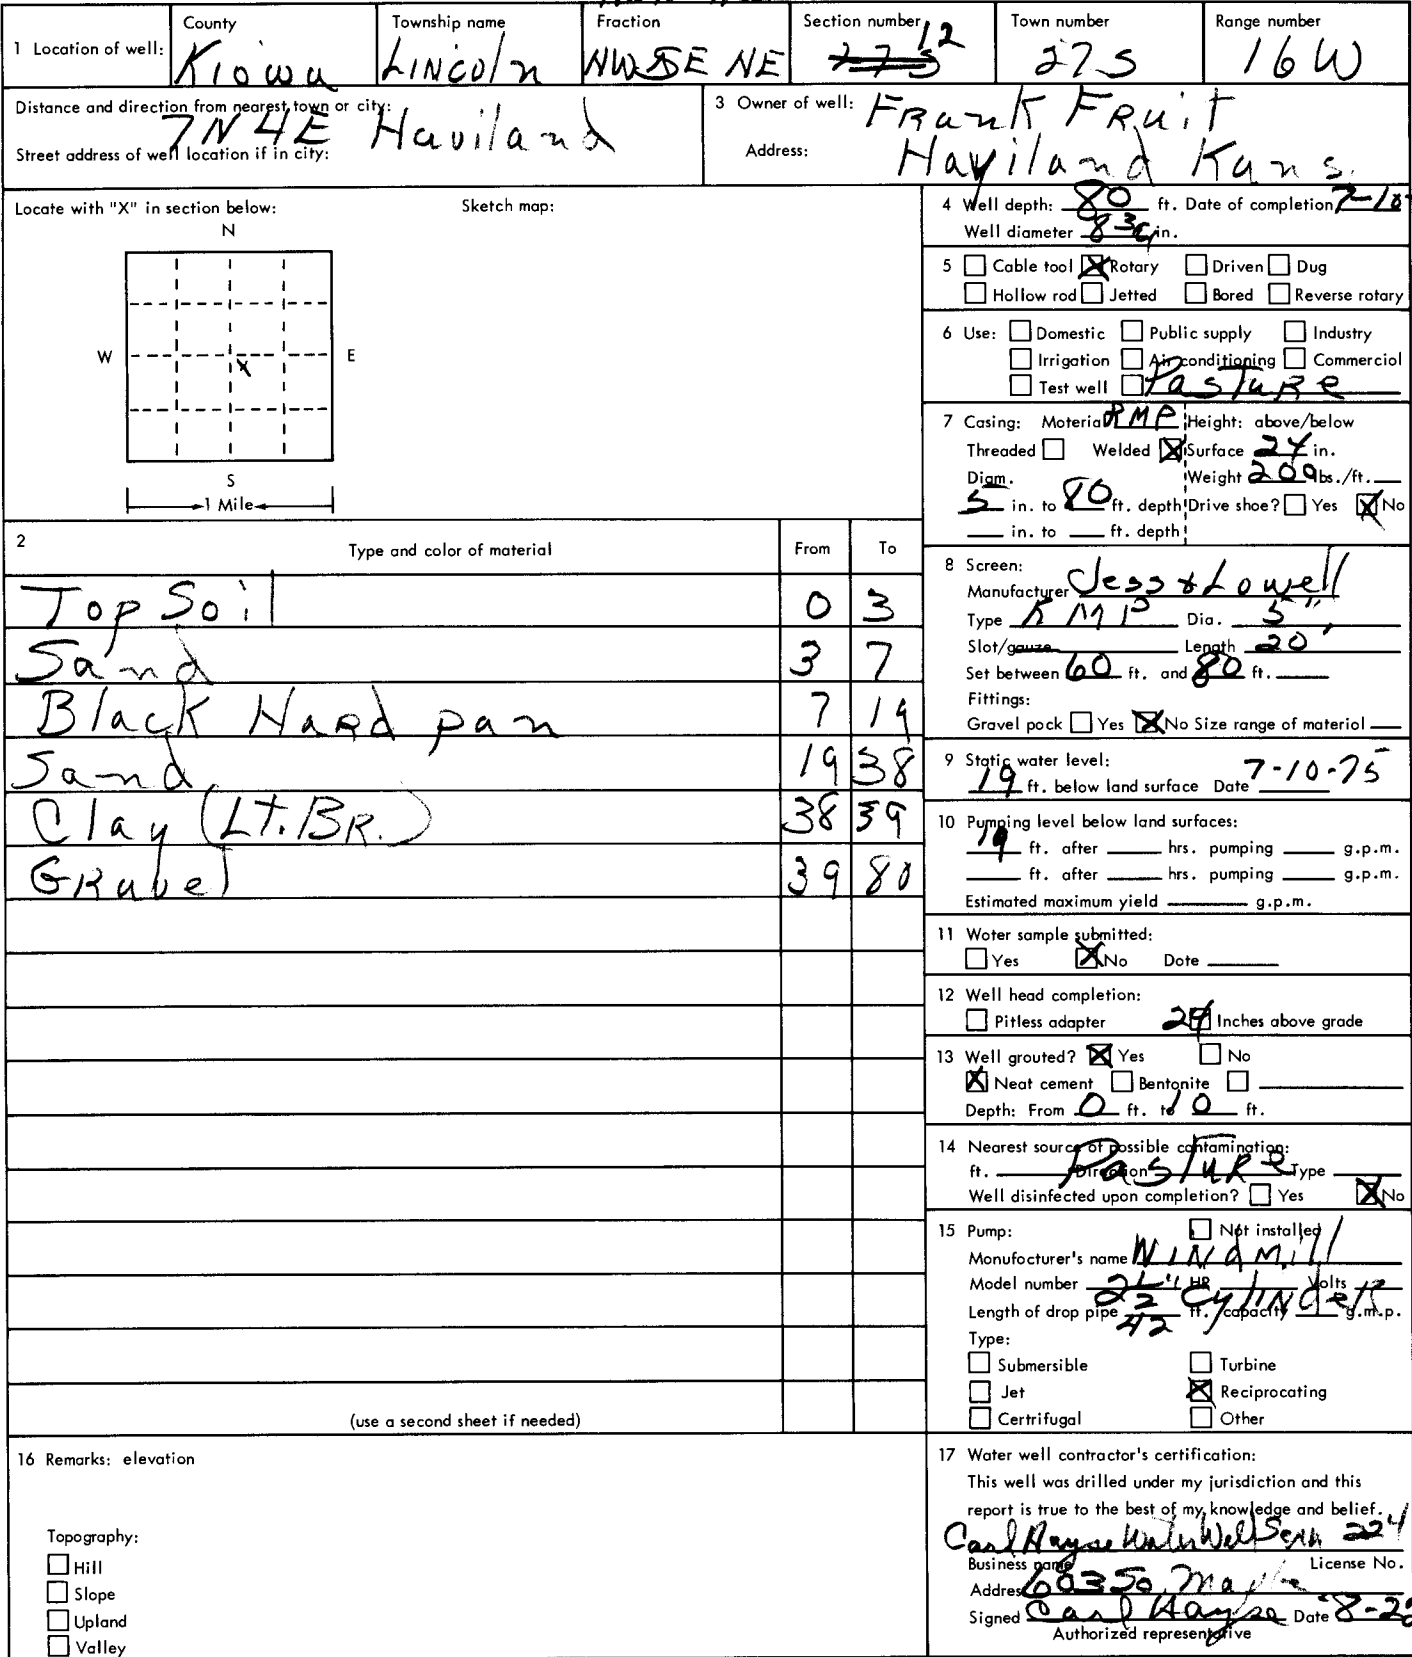 1 Location of well: County Kiowa Township name LINColn Fraction NW SE NE Section number 12 Town number 27S Range number 16W
Distance and direction from nearest town or city: 7N 4E Haviland
Street address of well location if in city:
3 Owner of well: FRank FRuit
Address: Haviland Kans.
Locate with "X" in section below: Sketch map:
N
W X E
S
1 Mile
4 Well depth: 80 ft. Date of completion 7-10-
Well diameter 8 3/4 in.
5 Cable tool X Rotary Driven Dug
Hollow rod Jetted Bored Reverse rotary
6 Use: Domestic Public supply Industry
Irrigation Air conditioning Commercial
Test well PasTuRe
7 Casing: Material RMP Height: above/below
Threaded Welded X Surface 24 in.
Diam. Weight 200 lbs./ft.
5 in. to 80 ft. depth Drive shoe? Yes X No
in. to ft. depth
2 Type and color of material From To
Top Soil 0 3
Sand 3 7
Black HaRd pan 7 19
Sand 19 38
Clay (LT. BR.) 38 39
GRavel 39 80
(use a second sheet if needed)
8 Screen:
Manufacturer Jess & Lowell
Type RMP Dia. 5"
Slot/gauze Length 20'
Set between 60 ft. and 80 ft.
Fittings:
Gravel pack Yes X No Size range of material
9 Static water level:
19 ft. below land surface Date 7-10-75
10 Pumping level below land surfaces:
19 ft. after hrs. pumping g.p.m.
ft. after hrs. pumping g.p.m.
Estimated maximum yield g.p.m.
11 Water sample submitted:
Yes X No Date
12 Well head completion:
Pitless adapter 24 Inches above grade
13 Well grouted? X Yes No
X Neat cement Bentonite
Depth: From 0 ft. to 10 ft.
14 Nearest source of possible contamination:
ft. Direction PasTuRe Type
Well disinfected upon completion? Yes X No
15 Pump: Not installed
Manufacturer's name WINdMill
Model number 2 1/2" HP CylINdeR Volts
Length of drop pipe 42 ft. capacity g.m.p.
Type:
Submersible Turbine
Jet X Reciprocating
Certrifugal Other
16 Remarks: elevation
Topography:
Hill
Slope
Upland
Valley
17 Water well contractor's certification:
This well was drilled under my jurisdiction and this
report is true to the best of my knowledge and belief.
Carl Hayse Water Well Serv 224
Business name License No.
Address 603 So.
Signed Carl Hayse Date 8-2
Authorized representative